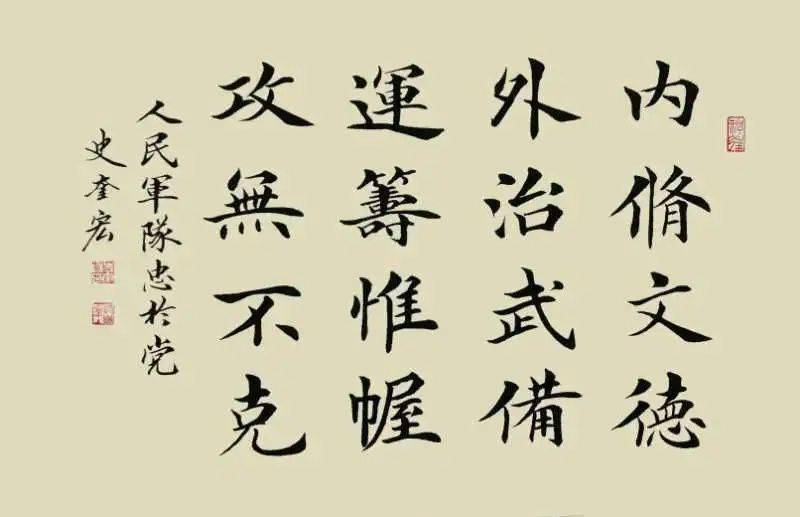 内脩文德
外治武備
運籌惟幄
攻無不克
人民軍隊忠於党
史奎宏